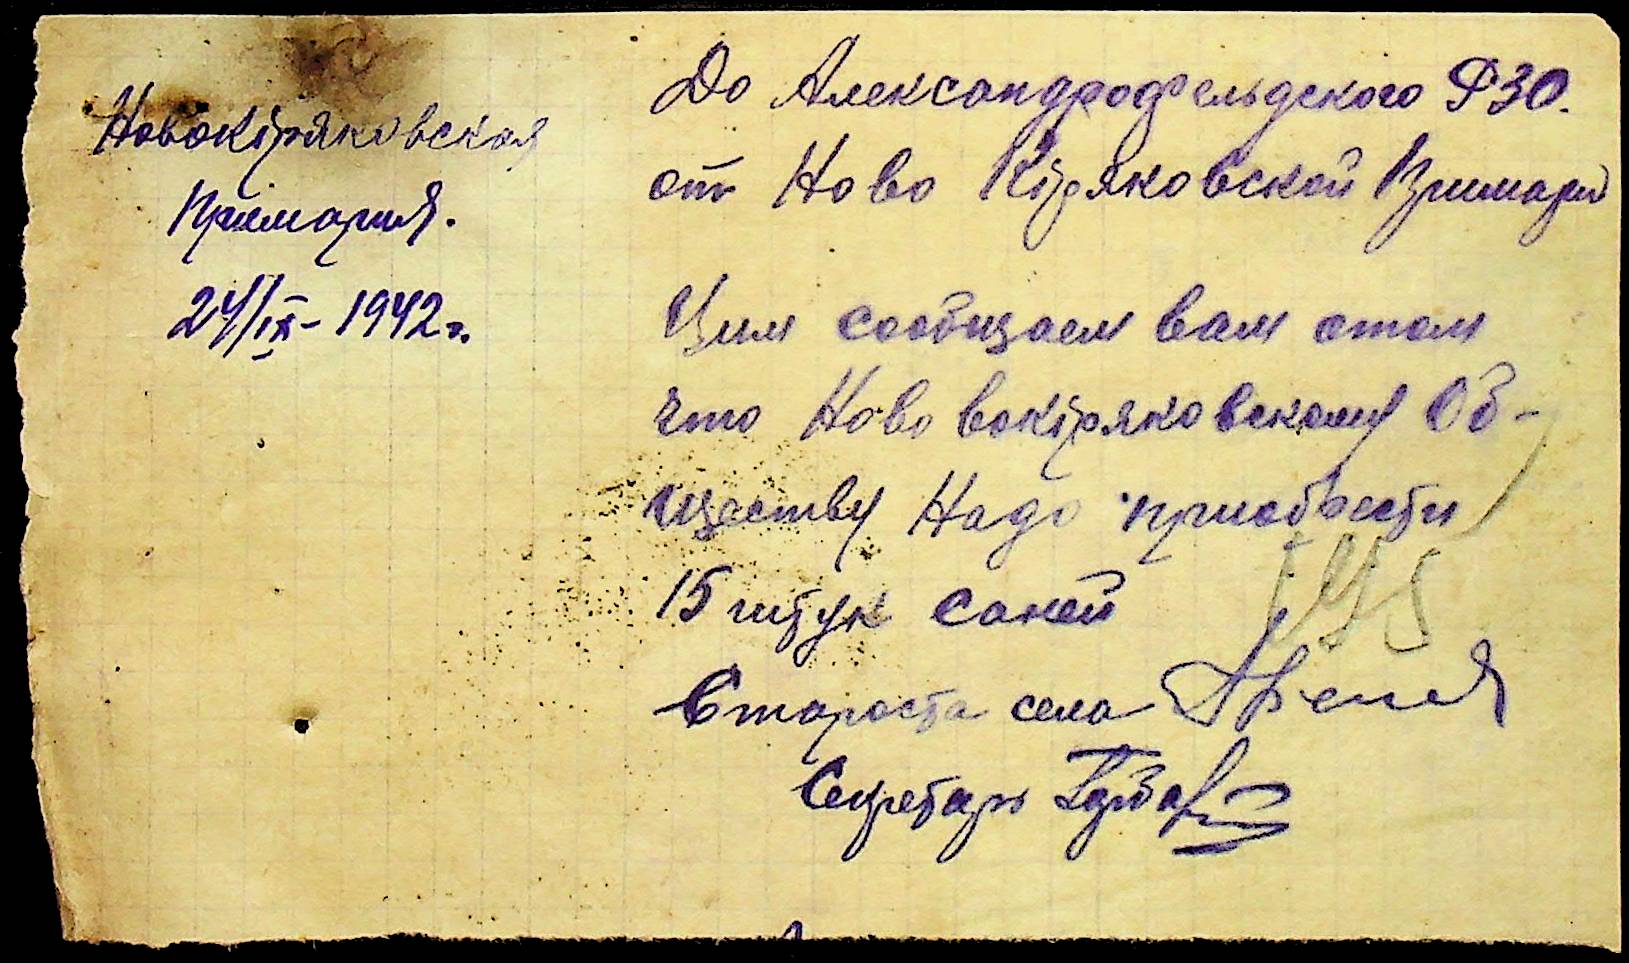 Новокіряковская
Примария.
24/IX - 1942 г.
До Александрофельдского РЗО.
от Ново Кіряковской Примарии
Цим сообщаем вам отом
что Ново вокіряковскому Об-
ществу Надо приобрести
15 штук саней
Староста села
Секретарь